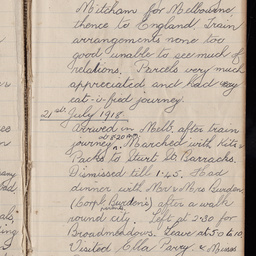 Mitcham for Melbourne,
thence to England. Train
arrangements none too
good, unable to see much of
relations. Parcels very much
appreciated, and had
eat-a-feed journey.
21st July 1918.
Arrived in Melb. after train
journey. Marched with Kits &
at 8.20 am
Packs to Sturt St. Barracks.
Dismissed till 1.45. Had
dinner with Mr & Mrs Burden
(Corpl Burden's) after a walk
parents
round city. Left at 2.30 for
Broadmeadows. Leave at 5 to 10
Visited Ella Parry, &